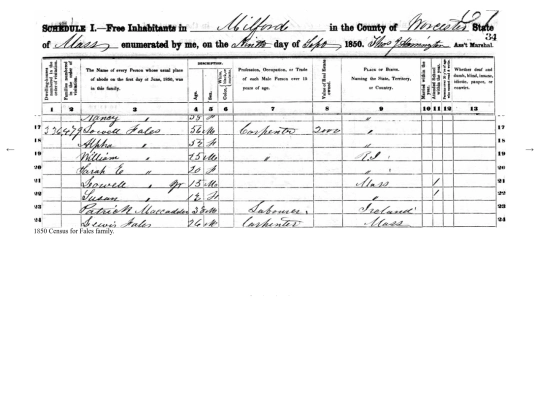 SCHEDULE I.—Free Inhabitants in Milford in the County of Worcester State
of Mass enumerated by me, on the Ninth day of Sept 1850. Ass't Marshal.
34
DESCRIPTION.
Dwelling-houses numbered in the order of visitation.
Families numbered in the order of visitation.
The Name of every Person whose usual place of abode on the first day of June, 1850, was in this family.
Age.
Sex.
Profession, Occupation, or Trade of each Male Person over 15 years of age.
Value of Real Estate owned.
PLACE OF BIRTH. Naming the State, Territory, or Country.
Married within the year.
Whether deaf and dumb, blind, insane, idiotic, pauper, or convict.
1 2 3 4 5 6 7 8 9 10 11 12 13
Nancy " 59 F "
17 Lowell Fales 56 M Carpenter 2000 " 17
18 Alpha " 52 F " 18
19 William " 25 M " R.I. 19
20 Sarah E " 20 F " 20
21 Lowell " Jr 15 M Mass 1 21
22 Susan " 12 F " 1 22
23 Patrick 38 M Labourer Ireland 23
24 Lewis Fales 26 M Carpenter Mass 24
1850 Census for Fales family.